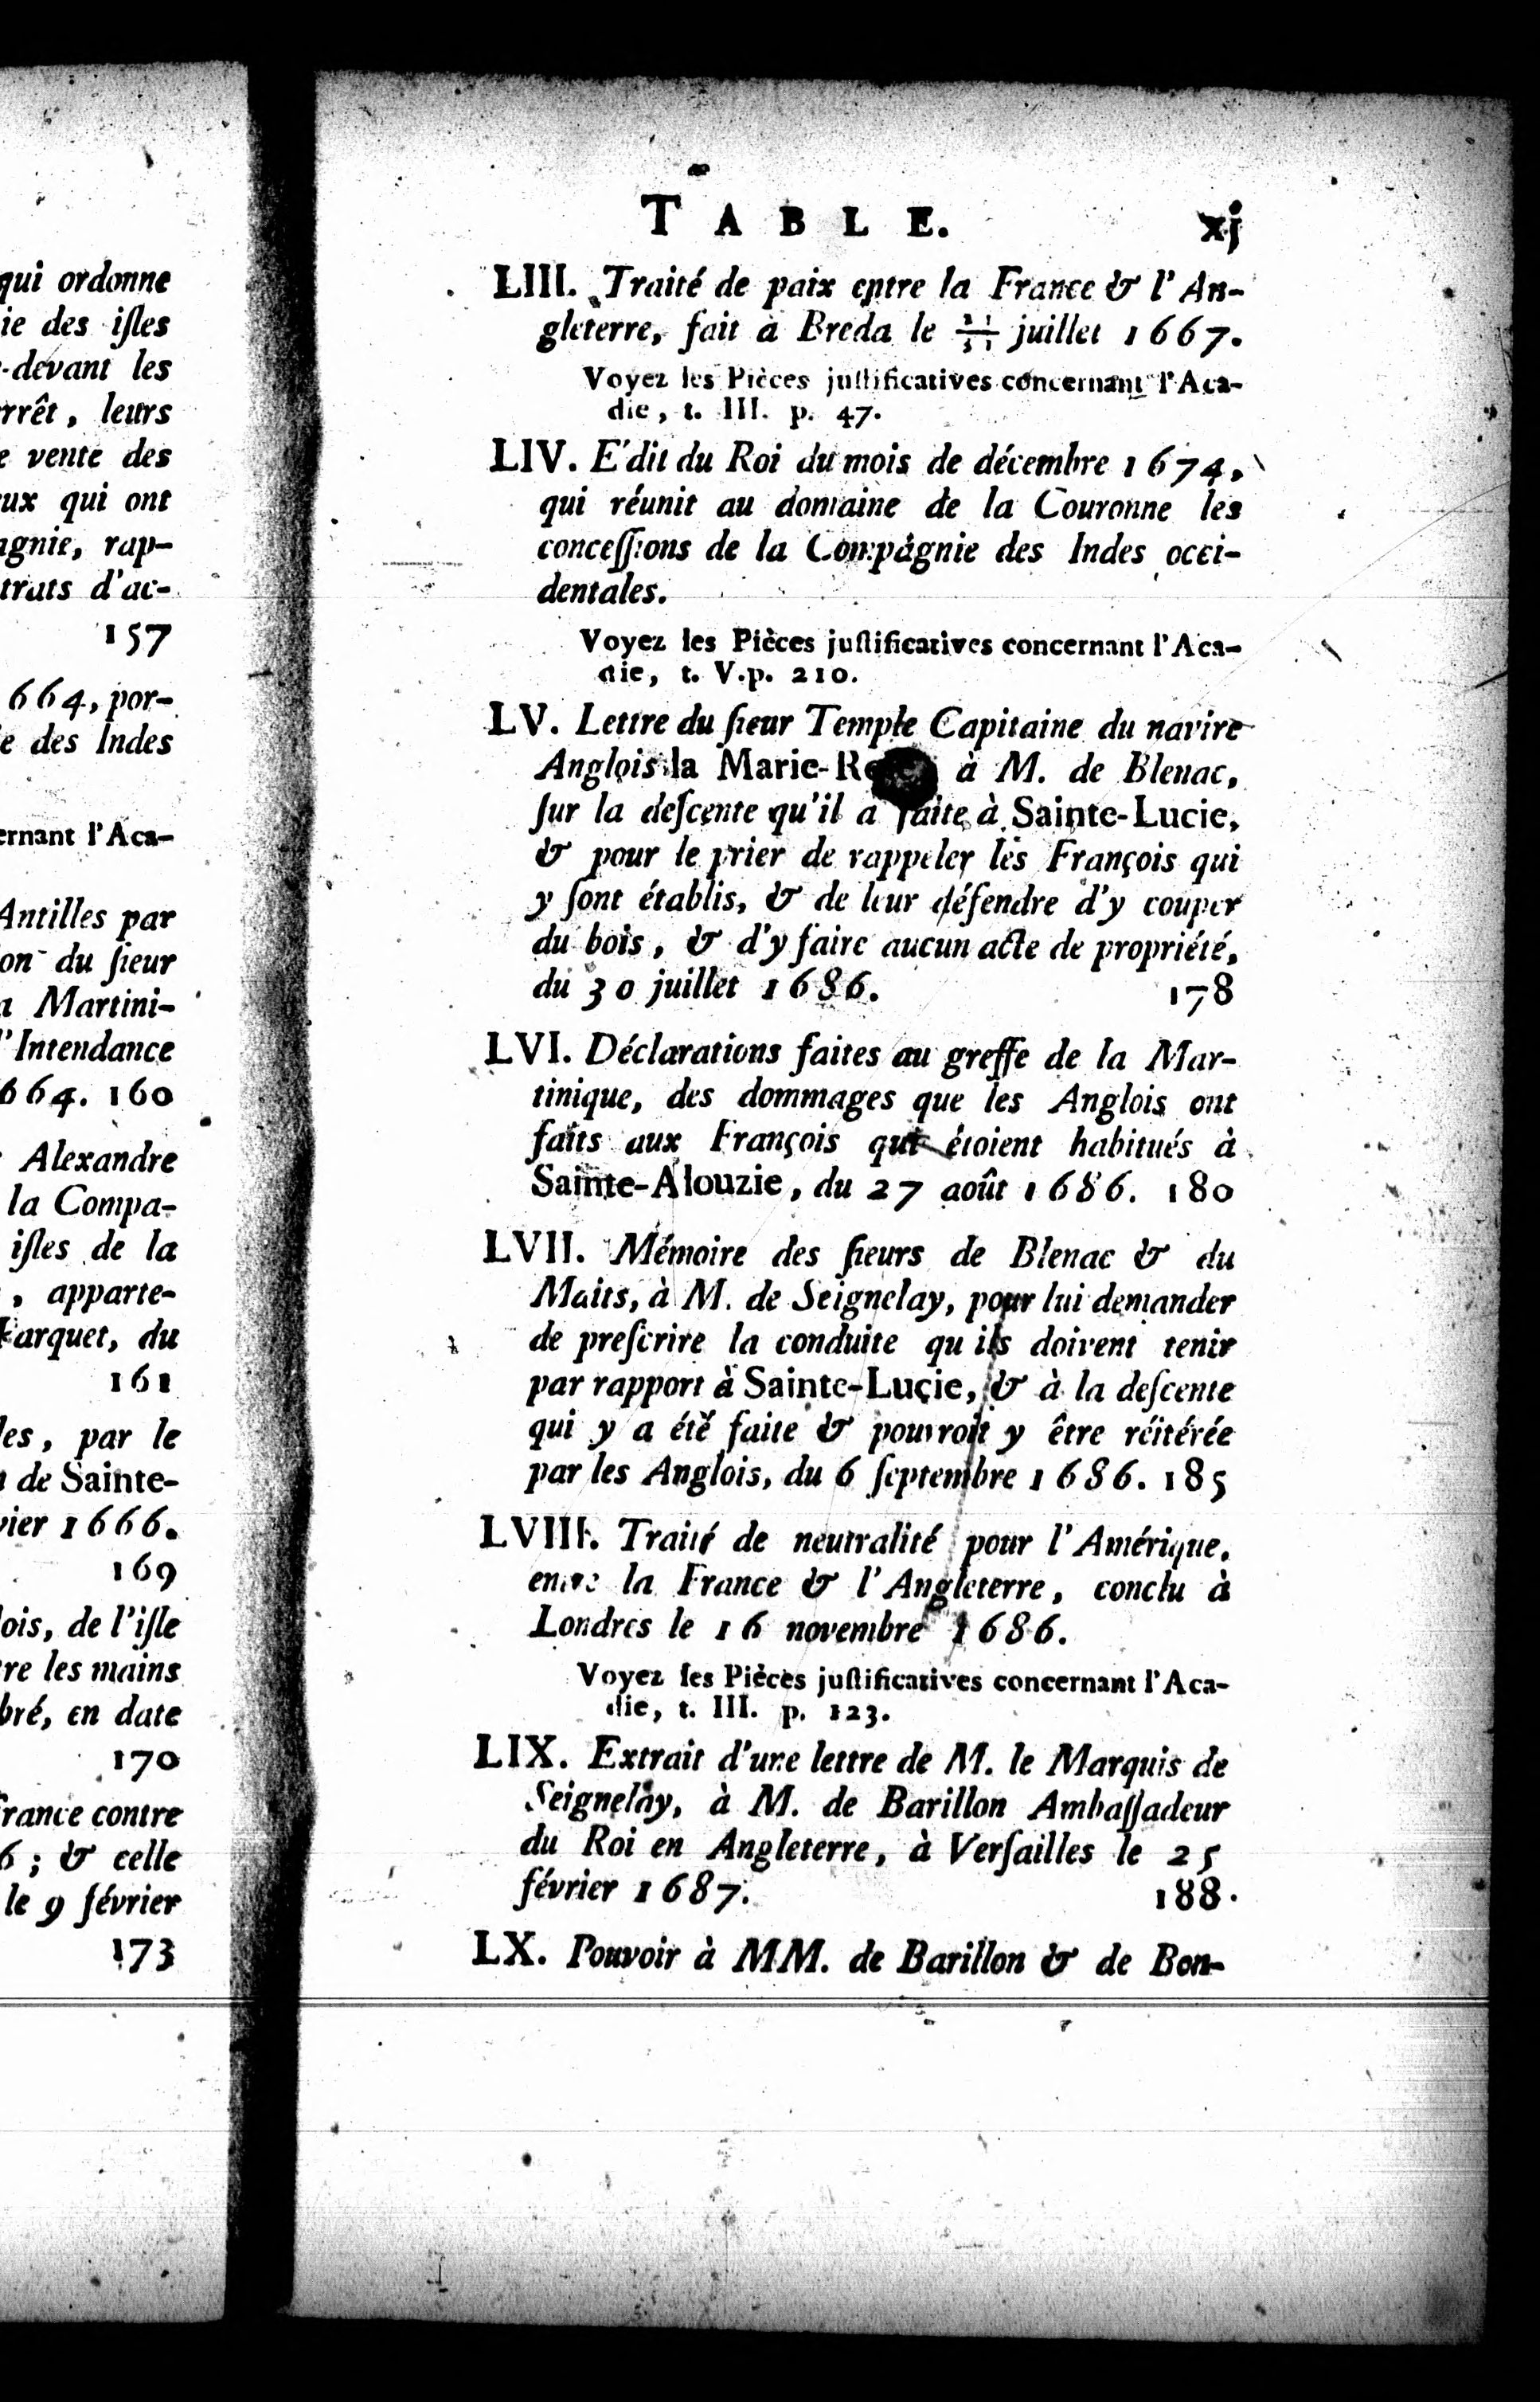 qui ordonne
ie des iſles
-devant les
rrêt, leurs
e vente des
ux qui ont
agnie, rap-
trats d'ac-
157
664, por-
e des Indes
ernant l'Aca-
Antilles par
on du ſieur
a Martini-
l'Intendance
664. 160
Alexandre
la Compa-
iſles de la
, apparte-
arquet, du
161
les, par le
de Sainte-
vier 1666.
169
lois, de l'iſle
re les mains
bré, en date
170
rance contre
6 ; & celle
le 9 février
173
TABLE. xj
LIII. Traité de paix entre la France & l'An-
gleterre, fait à Breda le 21/31 juillet 1667.
Voyez les Pièces juſtificatives concernant l'Aca-
die, t. III. p. 47.
LIV. E'dit du Roi du mois de décembre 1674,
qui réunit au domaine de la Couronne les
conceſſions de la Compagnie des Indes occi-
dentales.
Voyez les Pièces juſtificatives concernant l'Aca-
die, t. V. p. 210.
LV. Lettre du ſieur Temple Capitaine du navire
Anglois la Marie- à M. de Blenac,
ſur la deſcente qu'il a faite à Sainte-Lucie,
& pour le prier de rappeler les François qui
y ſont établis, & de leur défendre d'y couper
du bois, & d'y faire aucun acte de propriété,
du 30 juillet 1686. 178
LVI. Déclarations faites au greffe de la Mar-
tinique, des dommages que les Anglois ont
faits aux François qui étoient habitués à
Sainte-Alouzie, du 27 août 1686. 180
LVII. Mémoire des ſieurs de Blenac & du
Maits, à M. de Seignelay, pour lui demander
de preſcrire la conduite qu'ils doivent tenir
par rapport à Sainte-Lucie, & à la deſcente
qui y a été faite & pourroit y être réitérée
par les Anglois, du 6 ſeptembre 1686. 185
LVIII. Traité de neutralité pour l'Amérique,
entre la France & l'Angleterre, conclu à
Londres le 16 novembre 1686.
Voyez les Pièces juſtificatives concernant l'Aca-
die, t. III. p. 123.
LIX. Extrait d'une lettre de M. le Marquis de
Seignelay, à M. de Barillon Ambaſſadeur
du Roi en Angleterre, à Verſailles le 25
février 1687. 188.
LX. Pouvoir à MM. de Barillon & de Bon-